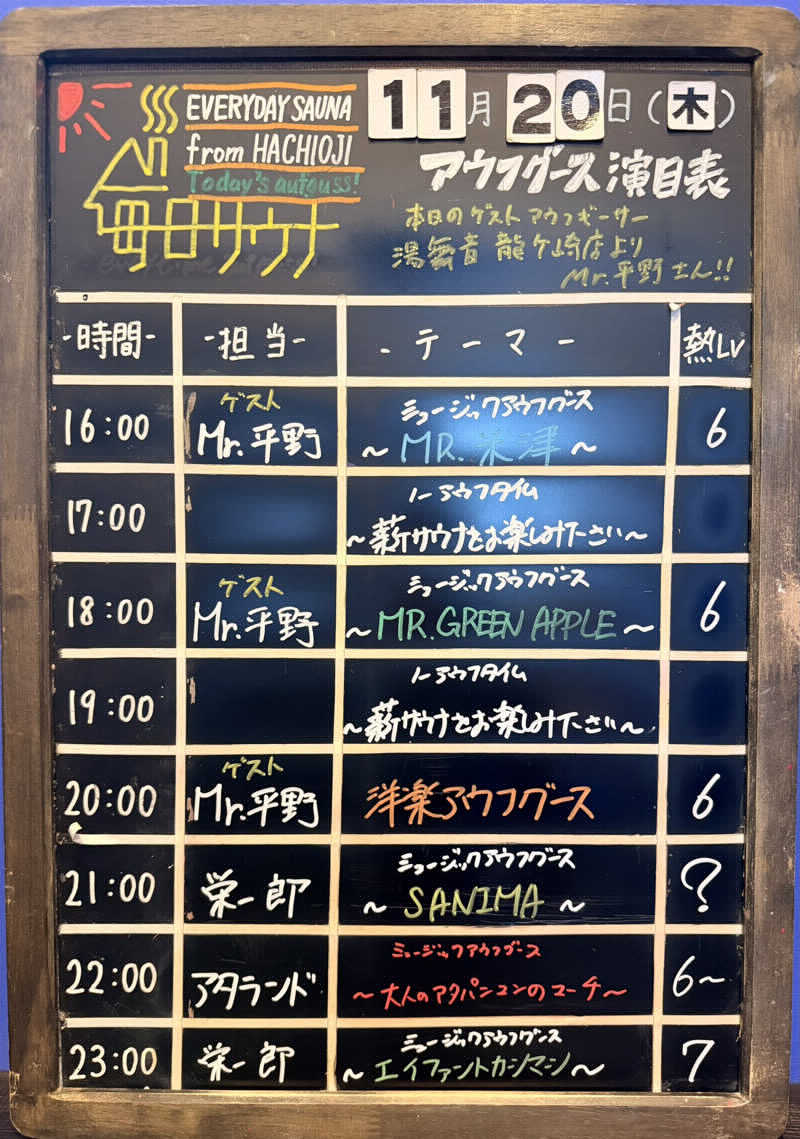 EVERYDAY SAUNA
from HACHIOJI
Today's aufguss!
毎日サウナ
11月20日(木)
アウフグース演目表
本日のゲストアウフギーサー
湯舞音 龍ケ崎店より
Mr.平野さん!!
-時間- -担当- -テーマ- 熱LV
16:00 ゲスト Mr.平野 ミュージックアウフグース 6
~MR.米津~
17:00 ノーアウフタイム
~薪サウナをお楽しみ下さい~
18:00 ゲスト Mr.平野 ミュージックアウフグース 6
~MR.GREEN APPLE~
19:00 ノーアウフタイム
~薪サウナをお楽しみ下さい~
20:00 ゲスト Mr.平野 洋楽アウフグース 6
21:00 栄一郎 ミュージックアウフグース ?
~SANIMA~
22:00 アタランド ミュージックアウフグース 6~
~大人のアタパンマンのマーチ~
23:00 栄一郎 ミュージックアウフグース 7
~エイファントカシマシ~